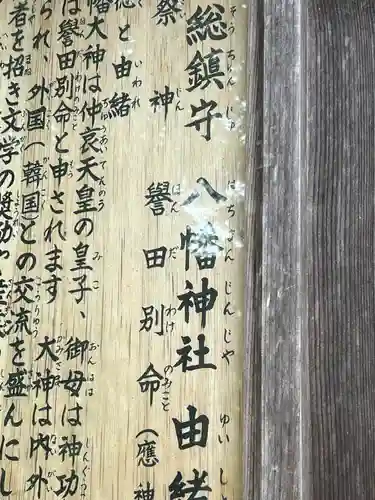 総鎮守 八幡神社 由緒
祭神 誉田別命(應神
徳と由緒
幡大神は仲哀天皇の皇子、御母は神功
は誉田別命と申されます 大神は内外
られ、外国(韓国)との交流を盛んにし
者を招き文学の奨励